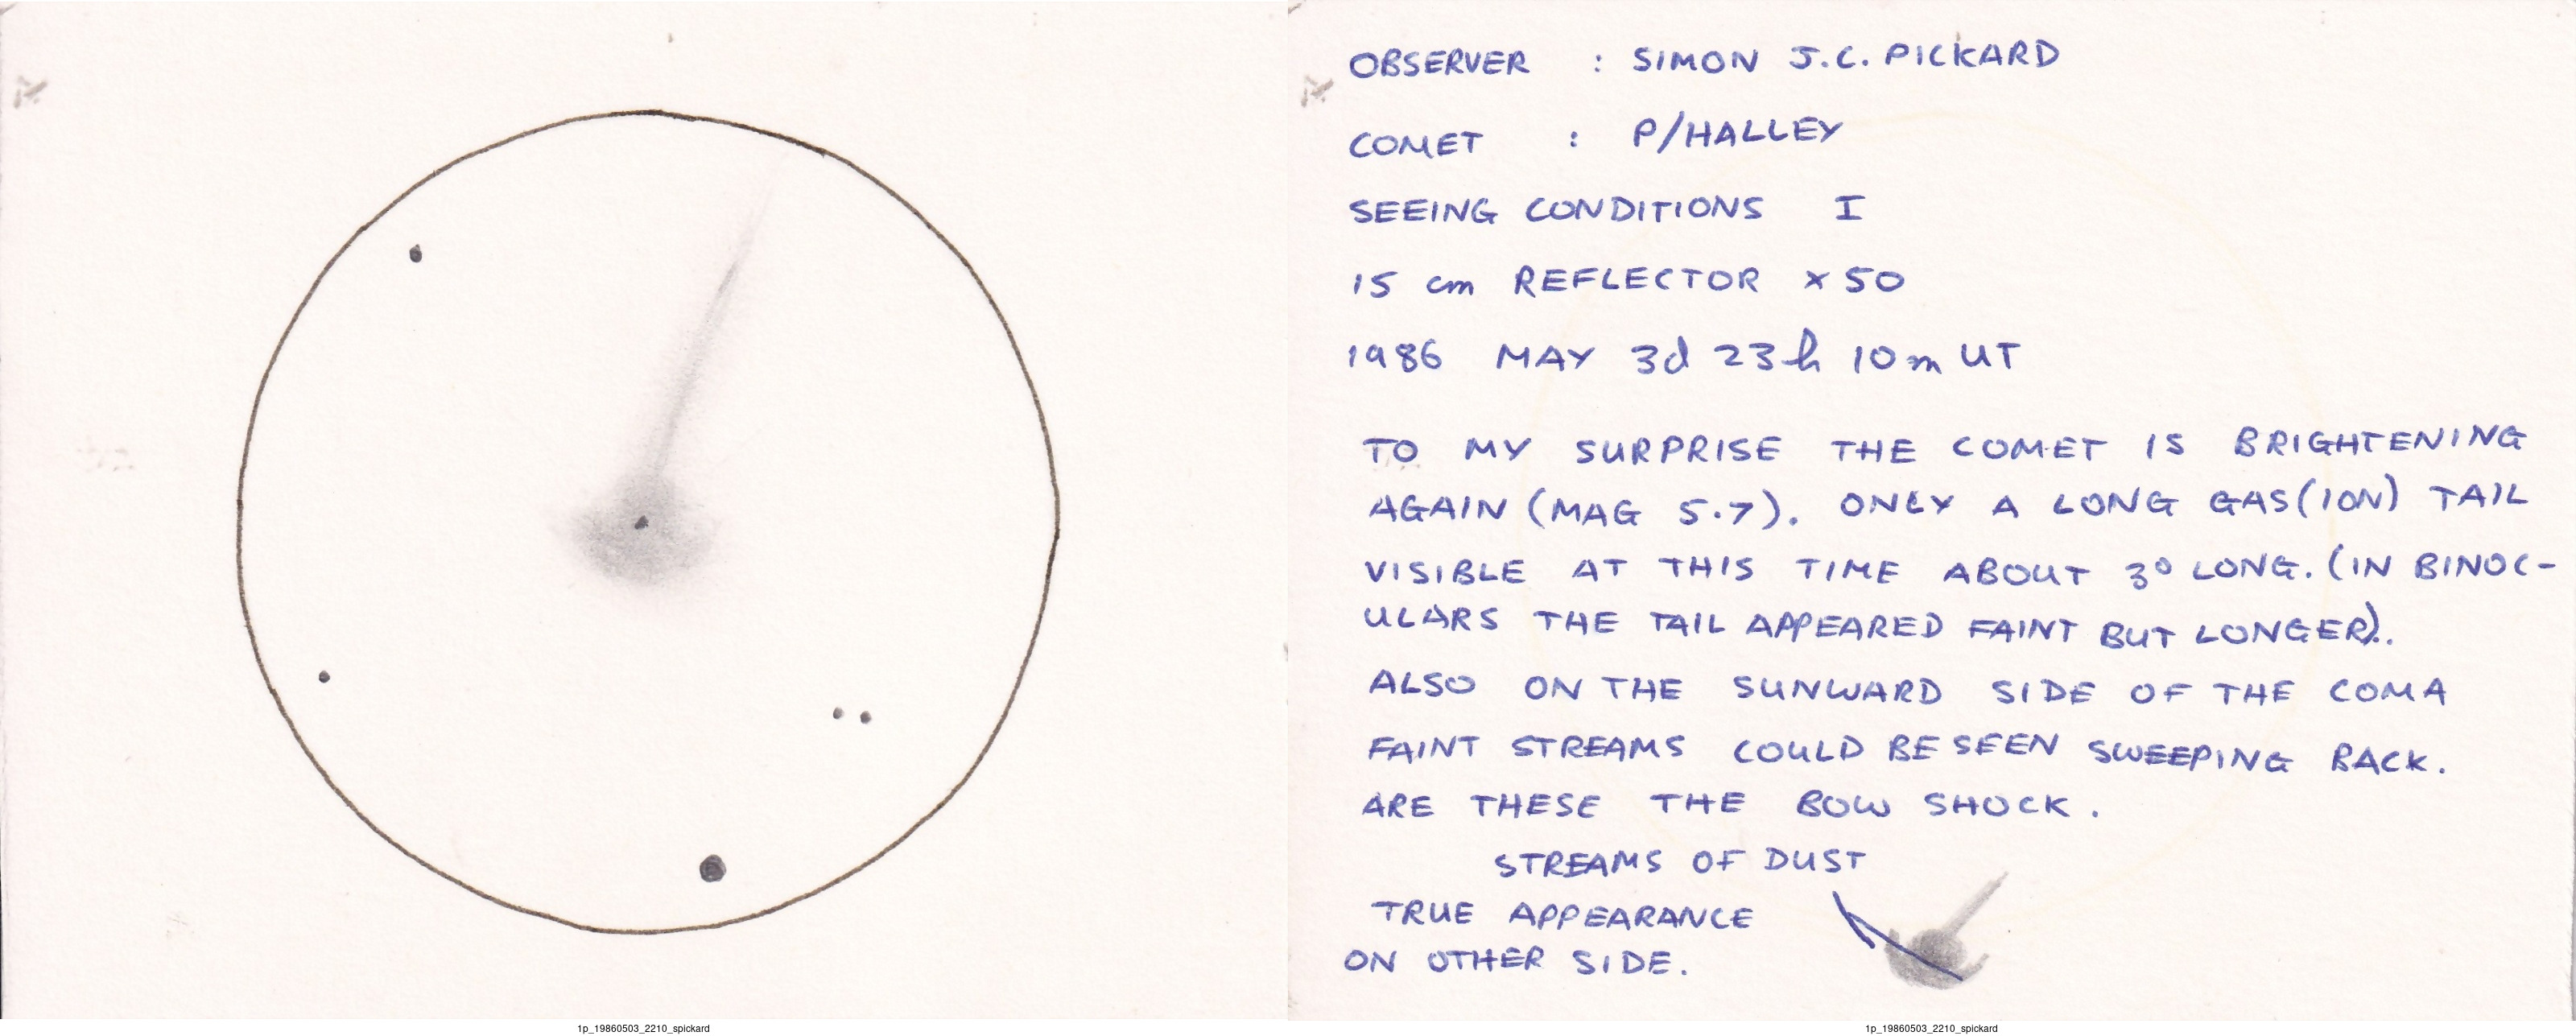 OBSERVER : SIMON J.C. PICKARD
COMET : P/HALLEY
SEEING CONDITIONS I
15 cm REFLECTOR × 50
1986 MAY 3d 23h 10m UT
TO MY SURPRISE THE COMET IS BRIGHTENING
AGAIN (MAG 5.7). ONLY A LONG GAS(ION) TAIL
VISIBLE AT THIS TIME ABOUT 3° LONG. (IN BINOC-
ULARS THE TAIL APPEARED FAINT BUT LONGER).
ALSO ON THE SUNWARD SIDE OF THE COMA
FAINT STREAMS COULD BE SEEN SWEEPING BACK.
ARE THESE THE BOW SHOCK.
STREAMS OF DUST
TRUE APPEARANCE
ON OTHER SIDE.
1p_19860503_2210_spickard
1p_19860503_2210_spickard